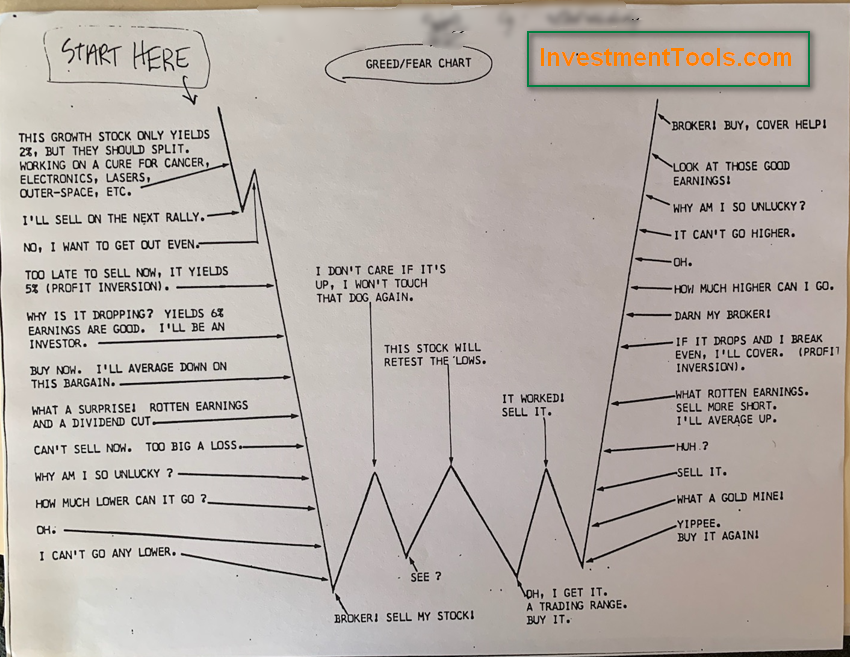 START HERE
GREED/FEAR CHART
InvestmentTools.com
THIS GROWTH STOCK ONLY YIELDS
2%, BUT THEY SHOULD SPLIT.
WORKING ON A CURE FOR CANCER,
ELECTRONICS, LASERS,
OUTER-SPACE, ETC.
I'LL SELL ON THE NEXT RALLY.
NO, I WANT TO GET OUT EVEN.
TOO LATE TO SELL NOW, IT YIELDS
5% (PROFIT INVERSION).
WHY IS IT DROPPING? YIELDS 6%
EARNINGS ARE GOOD. I'LL BE AN
INVESTOR.
BUY NOW. I'LL AVERAGE DOWN ON
THIS BARGAIN.
WHAT A SURPRISE! ROTTEN EARNINGS
AND A DIVIDEND CUT.
CAN'T SELL NOW. TOO BIG A LOSS.
WHY AM I SO UNLUCKY ?
HOW MUCH LOWER CAN IT GO ?
OH.
I CAN'T GO ANY LOWER.
BROKER! SELL MY STOCK!
I DON'T CARE IF IT'S
UP, I WON'T TOUCH
THAT DOG AGAIN.
SEE ?
THIS STOCK WILL
RETEST THE LOWS.
OH, I GET IT.
A TRADING RANGE.
BUY IT.
IT WORKED!
SELL IT.
YIPPEE.
BUY IT AGAIN!
WHAT A GOLD MINE!
SELL IT.
HUH ?
WHAT ROTTEN EARNINGS.
SELL MORE SHORT.
I'LL AVERAGE UP.
IF IT DROPS AND I BREAK
EVEN, I'LL COVER. (PROFIT
INVERSION).
DARN MY BROKER!
HOW MUCH HIGHER CAN I GO.
OH.
IT CAN'T GO HIGHER.
WHY AM I SO UNLUCKY?
LOOK AT THOSE GOOD
EARNINGS!
BROKER! BUY, COVER HELP!